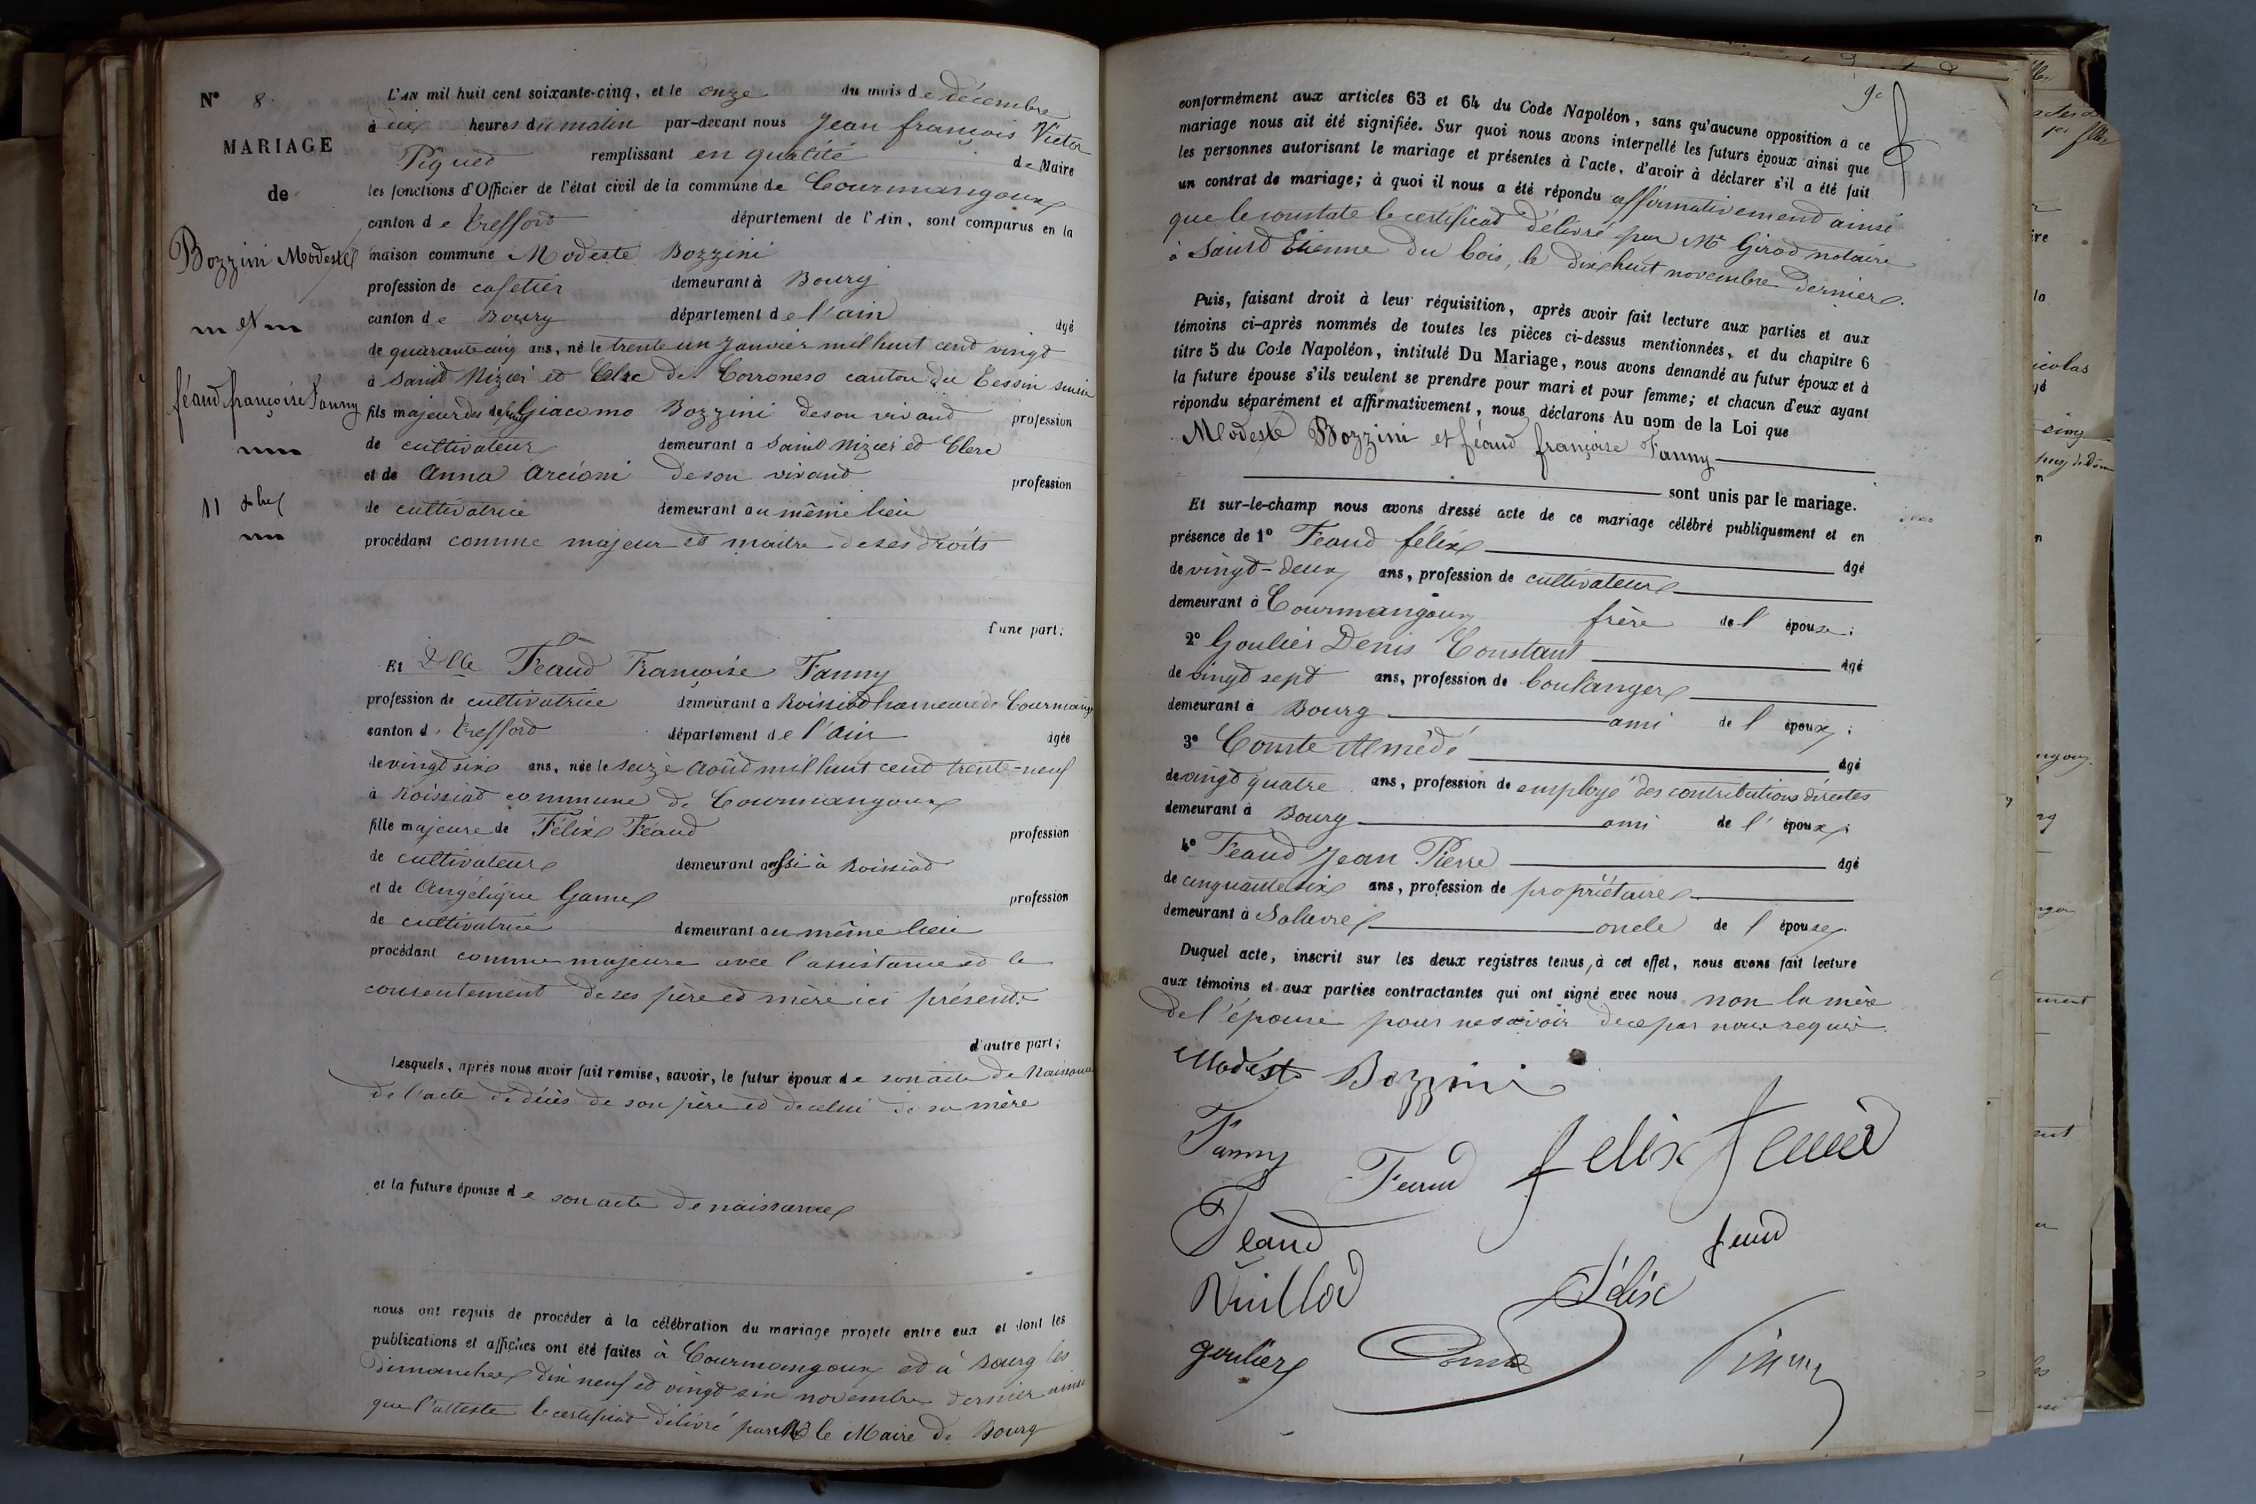 N° 8.
MARIAGE
de
Bozzini Modeste
et
féaud françoise Fanny
11 xbre
L'AN mil huit cent soixante-cinq, et le onze du mois de décembre
à dix heures du matin par-devant nous Jean françois Victor
Piqued remplissant en qualité de Maire
les fonctions d'Officier de l'état civil de la commune de Courmangoux
canton de Trefford département de l'Ain, sont comparus en la
maison commune Modeste Bozzini
profession de cafetier demeurant à Bourg
canton de Bourg département de l'ain âgé
de quarante cinq ans, né le trente un Janvier mil huit cent vingt
à Saint Nizier et Clerc de canton du Tessin suisse
fils majeur des défunts Giacomo Bozzini de son vivant profession
de cultivateur demeurant à Saint Nizier et Clerc
et de Anna Arcioni de son vivant profession
de cultivatrice demeurant au même lieu
procédant comme majeur et maitre de ses droits
d'une part;
Et Dlle Féaud Françoise Fanny
profession de cultivatrice demeurant à Roissiat hameau de Courmangoux
canton de Trefford département de l'ain âgée
de vingt six ans, née le seize août mil huit cent trente-neuf
à Roissiat commune de Courmangoux
fille majeure de Félix Féaud profession
de cultivateur demeurant aussi à Roissiat
et de Angélique Gamel profession
de cultivatrice demeurant au même lieu
procédant comme majeure avec l'assistance et le
consentement de ses père et mère ici présents
d'autre part;
Lesquels, après nous avoir fait remise, savoir, le futur époux de son acte de Naissance
de l'acte de décès de son père et de celui de sa mère
et la future épouse de son acte de naissance
nous ont requis de procéder à la célébration du mariage projeté entre eux et dont les
publications et affiches ont été faites à Courmangoux et à Bourg les
dimanches dix neuf et vingt six novembre dernier ainsi
que l'atteste le certificat délivré par Mr le Maire de Bourg
conformément aux articles 63 et 64 du Code Napoléon, sans qu'aucune opposition à ce
mariage nous ait été signifiée. Sur quoi nous avons interpellé les futurs époux ainsi que
les personnes autorisant le mariage et présentes à l'acte, d'avoir à déclarer s'il a été fait
un contrat de mariage; à quoi il nous a été répondu affirmativement ainsi
que le constate le certificat délivré par Me Girod notaire
à Saint Etienne du bois, le dix huit novembre dernier.
Puis, faisant droit à leur réquisition, après avoir fait lecture aux parties et aux
témoins ci-après nommés de toutes les pièces ci-dessus mentionnées, et du chapitre 6
titre 5 du Code Napoléon, intitulé Du Mariage, nous avons demandé au futur époux et à
la future épouse s'ils veulent se prendre pour mari et pour femme; et chacun d'eux ayant
répondu séparément et affirmativement, nous déclarons Au nom de la Loi que
Modeste Bozzini et féaud françoise Fanny
sont unis par le mariage.
Et sur-le-champ nous avons dressé acte de ce mariage célébré publiquement et en
présence de 1° Feaud félix âgé
de vingt-deux ans, profession de cultivateur
demeurant à Courmangoux frère de l'épouse;
2° Goulier Denis Constant âgé
de vingt sept ans, profession de boulanger
demeurant à Bourg ami de l'époux;
3° Comte Almédé âgé
de vingt quatre ans, profession de employé des contributions directes
demeurant à Bourg ami de l'époux;
4° Feaud Jean Pierre âgé
de cinquante six ans, profession de propriétaire
demeurant à Salavre oncle de l'épouse.
Duquel acte, inscrit sur les deux registres tenus, à cet effet, nous avons fait lecture
aux témoins et aux parties contractantes qui ont signé avec nous non la mère
de l'épouse pour ne savoir de ce par nous requise.
Modeste Bozzini
Fanny Feaud felix feaud
Feaud feaud
Félix
goulier Comte